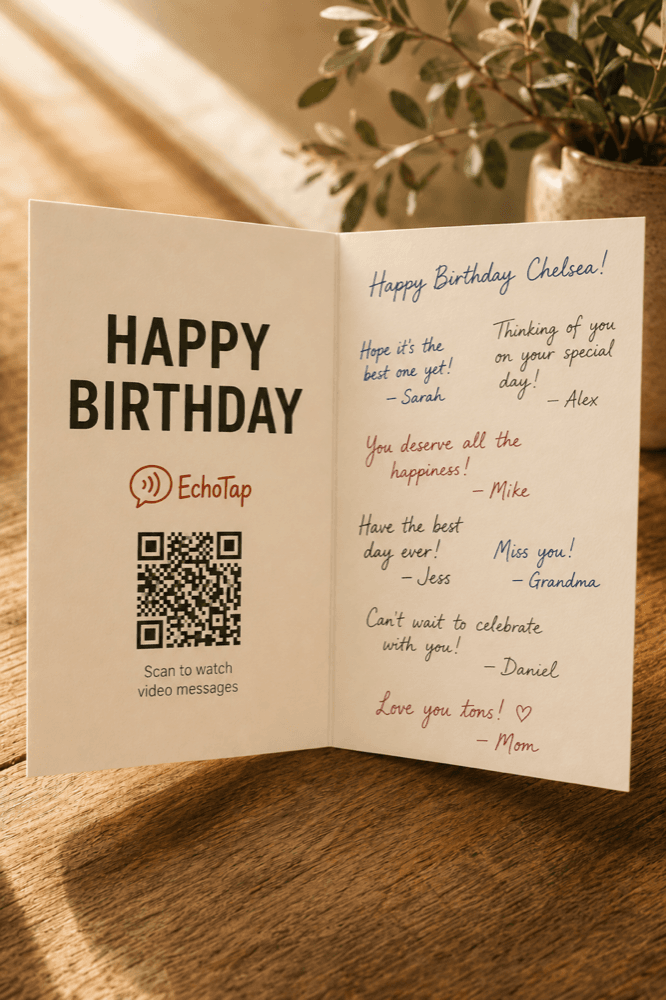 HAPPY
BIRTHDAY
EchoTap
Scan to watch
video messages
Happy Birthday Chelsea!
Hope it's the
best one yet!
– Sarah
Thinking of you
on your special
day!
– Alex
You deserve all the
happiness!
– Mike
Have the best
day ever!
– Jess
Miss you!
– Grandma
Can't wait to celebrate
with you!
– Daniel
Love you tons! ♡
– Mom